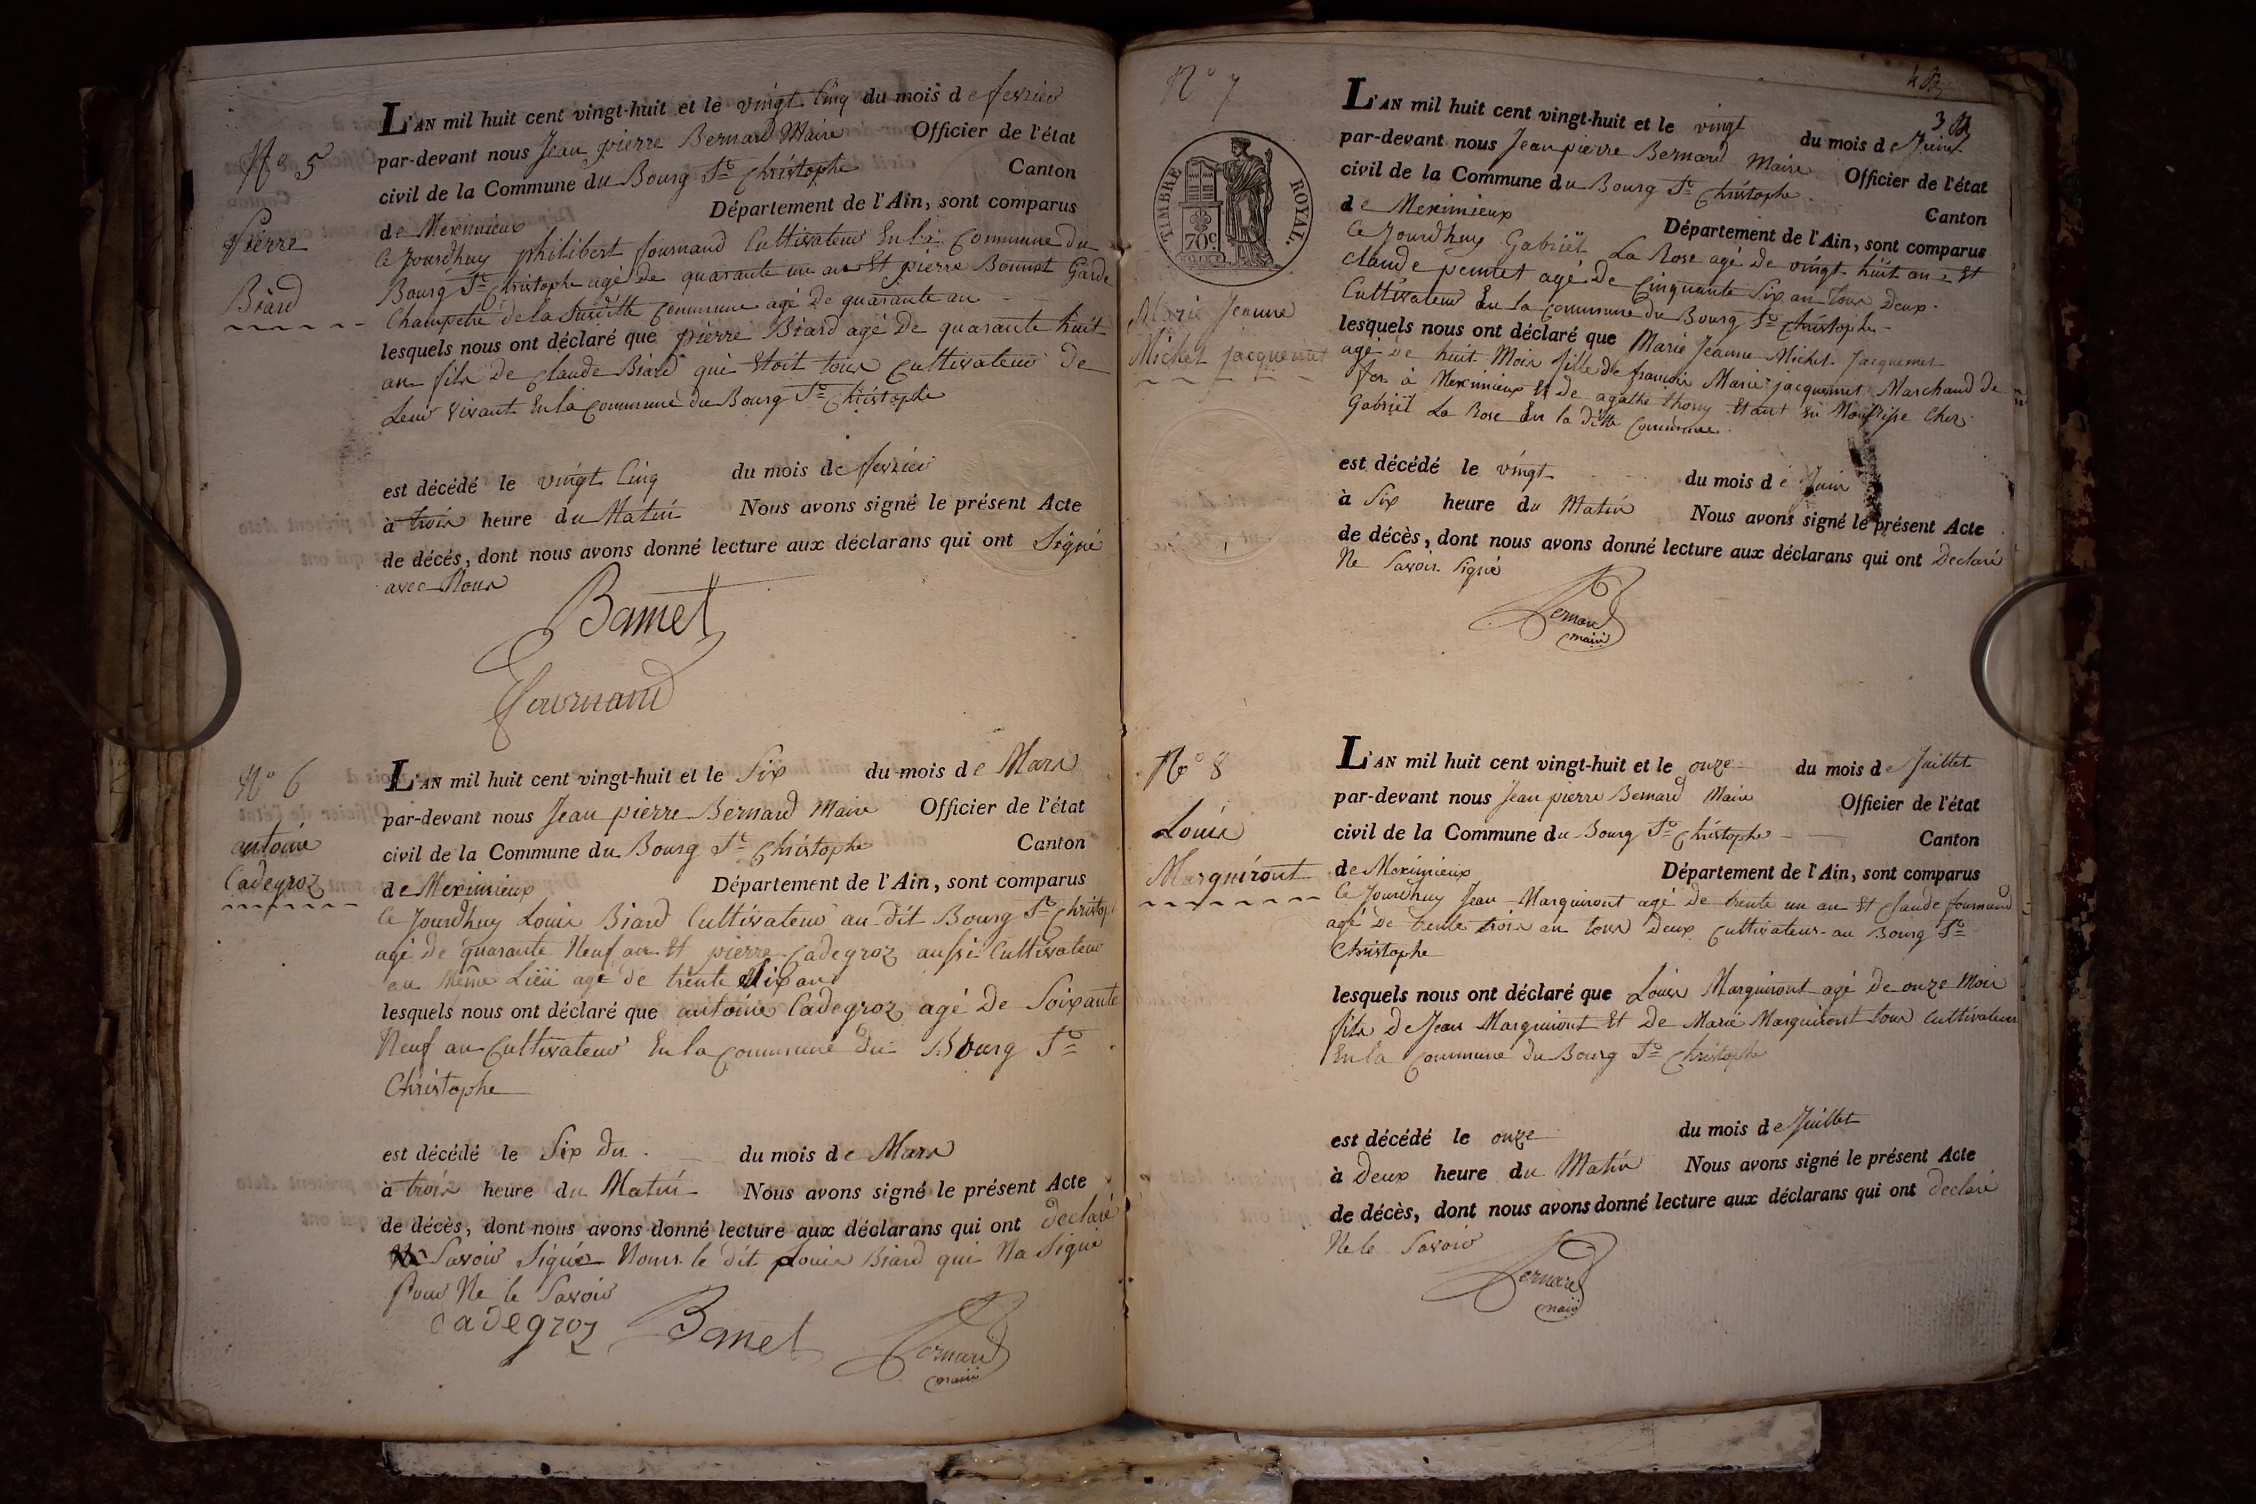 N° 5
Pierre
Biard
L'AN mil huit cent vingt-huit et le vingt Cinq du mois de fevrier
par-devant nous Jean pierre Bernard Maire Officier de l'état
civil de la Commune du Bourg St Christophe Canton
de Meximieux Département de l'Ain, sont comparus
Ce Jourdhuy philibert fournand Cultivateur En la Commune du
Bourg St Christophe agé De quarante un an Et pierre Bonnet Garde
Champetre de la Susditte Commune agé De quarante an
lesquels nous ont déclaré que pierre Biard agé De quarante huit
an fils De claude Biard qui Etoit tous Cultivateur De
Leur vivant En la Commune du Bourg St Christophe
est décédé le vingt Cinq du mois de fevrier
à trois heure du Matin Nous avons signé le présent Acte
de décés, dont nous avons donné lecture aux déclarans qui ont Signé
avec Nous
Fournand
N° 6
antoine
Cadegroz
L'AN mil huit cent vingt-huit et le Six du mois de Mars
par-devant nous Jean pierre Bernard Maire Officier de l'état
civil de la Commune du Bourg St Christophe Canton
de Meximieux Département de l'Ain, sont comparus
Ce Jourdhuy Louis Biard Cultivateur au dit Bourg St Christop
agé De quarante Neuf an Et pierre Cadegroz aussi Cultivateur
au Même Lieu agé de trente
lesquels nous ont déclaré que antoine Cadegroz agé De Soixante
Neuf an Cultivateur En la Commune Du Bourg St
Christophe
est décédé le Six du du mois de Mars
à trois heure du Matin Nous avons signé le présent Acte
de décès, dont nous avons donné lecture aux déclarans qui ont declaré
Savoir Signé le dit Louis Biard qui Na Signé
pour Ne le Savoir
cadegroz Bernard
maire
4
3
N° 7
TIMBRE ROYAL.
70c.
Marie Jeanne
Michel Jacquemet
L'AN mil huit cent vingt-huit et le vingt du mois de Juin
par-devant nous Jean pierre Bernard Maire Officier de l'état
civil de la Commune du Bourg St Christophe Canton
de Meximieux Département de l'Ain, sont comparus
Ce Jourdhuy Gabriël La Rose agé De vingt huit an Et
claude agé De Cinquante Six an tous Deux
Cultivateur En la Commune du Bourg St Christophe
lesquels nous ont déclaré que Marie Jeanne Michel Jacquemet
agé De huit Mois fille De francois Marie jacquemet Marchand De
fer à Meximieux Et De agathe thony Etant En Chez
Gabriël La Rose En la ditte Commune
est décédé le vingt du mois de Juin
à Six heure du Matin Nous avons signé le présent Acte
de décès, dont nous avons donné lecture aux déclarans qui ont Declaré
Ne Savoir Signé
Bernard
maire
N° 8
Louis
Marguiront
L'AN mil huit cent vingt-huit et le onze du mois de Juillet
par-devant nous Jean pierre Bernard Maire Officier de l'état
civil de la Commune du Bourg St Christophe Canton
de Meximieux Département de l'Ain, sont comparus
Ce Jourdhuy Jean Marguiront agé De trente un an Et Claude fournand
agé De trente trois an tous Deux Cultivateur au Bourg St
Christophe
lesquels nous ont déclaré que Louis Marguiront agé De onze Mois
fils De Jean Marguiront Et De Marie Marguiront tous Cultivateur
En la Commune Du Bourg St Christophe
est décédé le onze du mois de Juillet
à Deux heure du Matin Nous avons signé le présent Acte
de décès, dont nous avons donné lecture aux déclarans qui ont declaré
Ne le Savoir
Bernard
maire